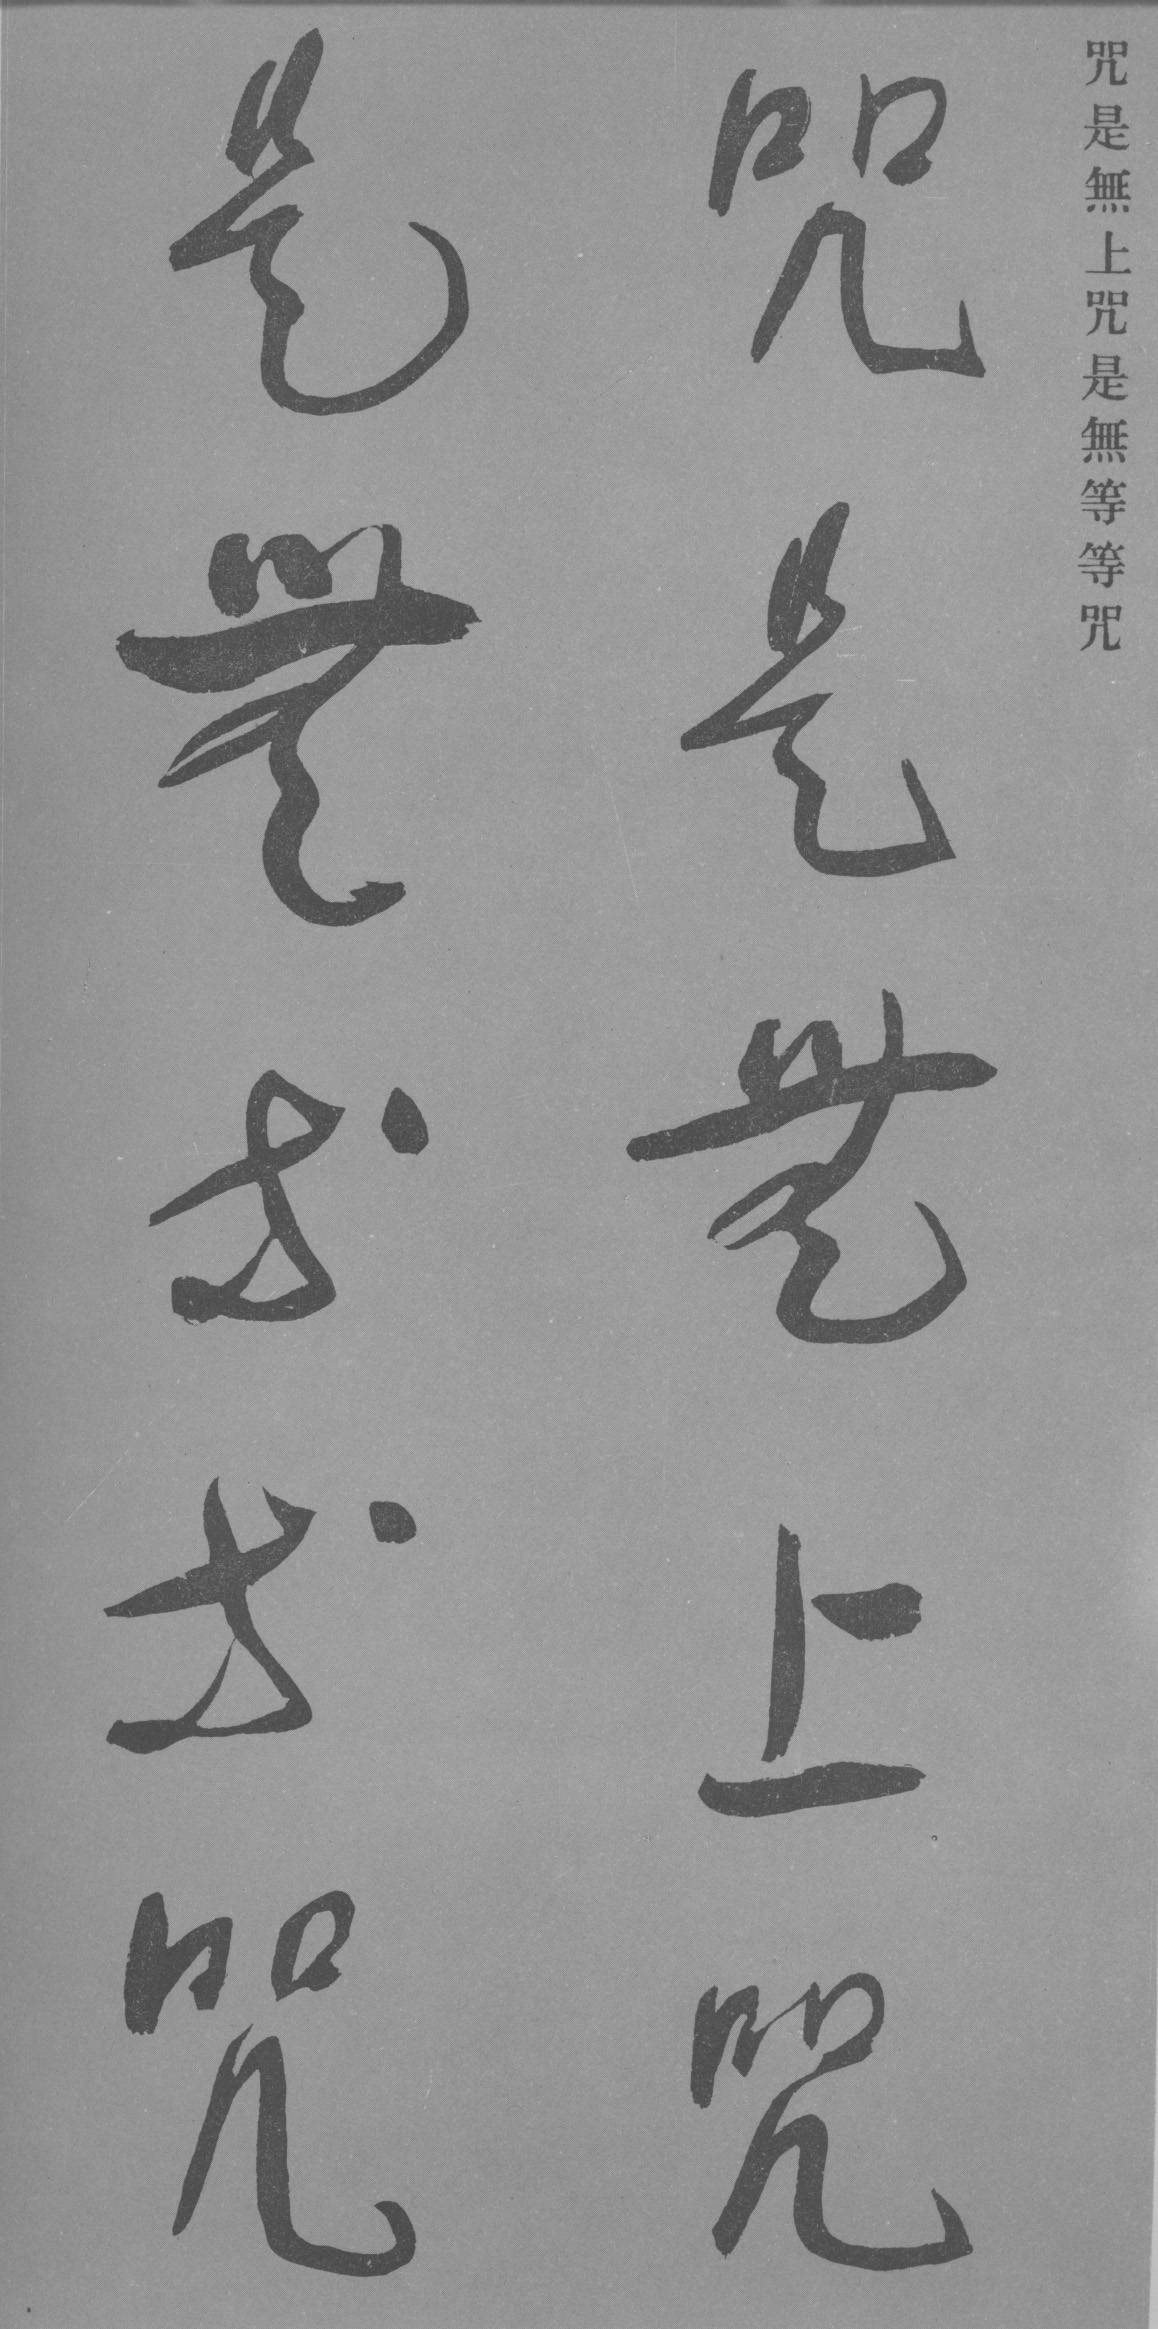 咒是無上咒是無等等咒
咒是無上咒
是無等等咒